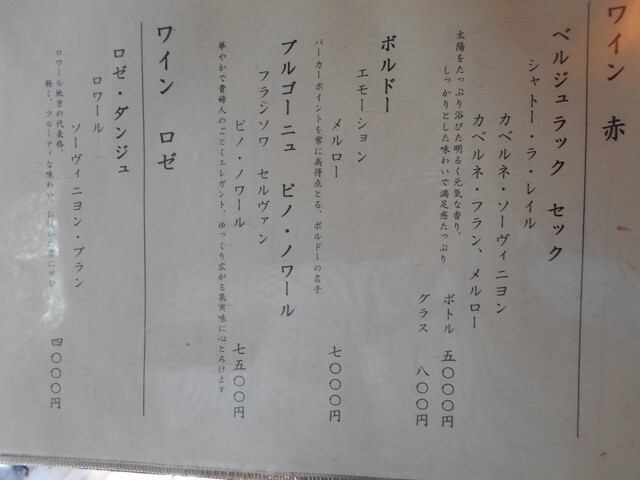 ワイン 赤
ベルジュラック セック
シャトー・ラ・レイル
カベルネ・ソーヴィニヨン
カベルネ・フラン、メルロー
太陽をたっぷり浴びた明るく元気な香り、
しっかりとした味わいで満足感たっぷり
ボトル 五〇〇〇円
グラス 八〇〇円
ボルドー
エモーション
メルロー
パーカーポイントを常に高得点とる、ボルドーの名手
七〇〇〇円
ブルゴーニュ ピノ・ノワール
フランソワ セルヴァン
ピノ・ノワール
華やかで貴婦人のごとくエレガント、ゆっくり広がる果実味に心とろけます
七五〇〇円
ワイン ロゼ
ロゼ・ダンジュ
ロワール
ソーヴィニヨン・ブラン
ロワール地方の代表格、
軽く、フルーティな味わい、お祝い
四〇〇〇円